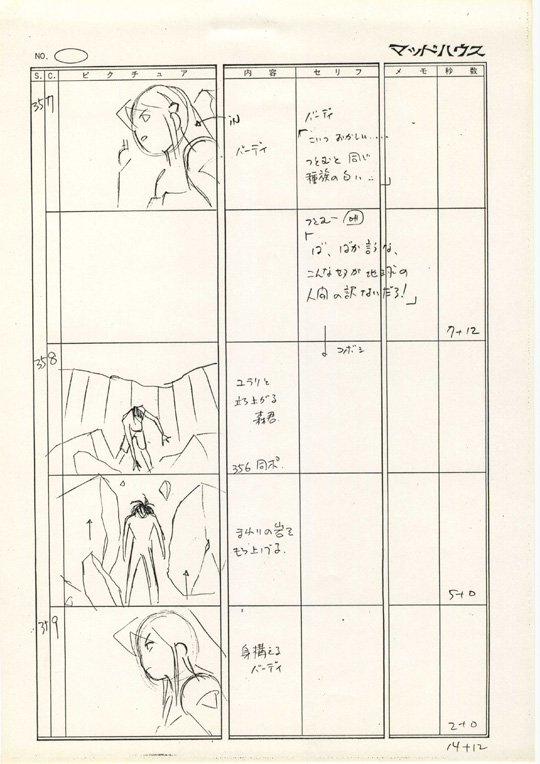 NO.
マッドハウス
S. C. ピクチュア 内容 セリフ メモ 秒数
357
IN
バーディ
バーディ
「こいつ おかしい……
つとむと 同じ
種族の匂い…」
つとむ
「ば、ばか言うな、
こんな奴が地球の
人間の訳ないだろ!」
7+12
コボシ
358
ユラリと
立ち上がる
森君
356 同ポ.
まわりの岩を
もち上げる.
5+0
359
身構える
バーディ
2+0
14+12